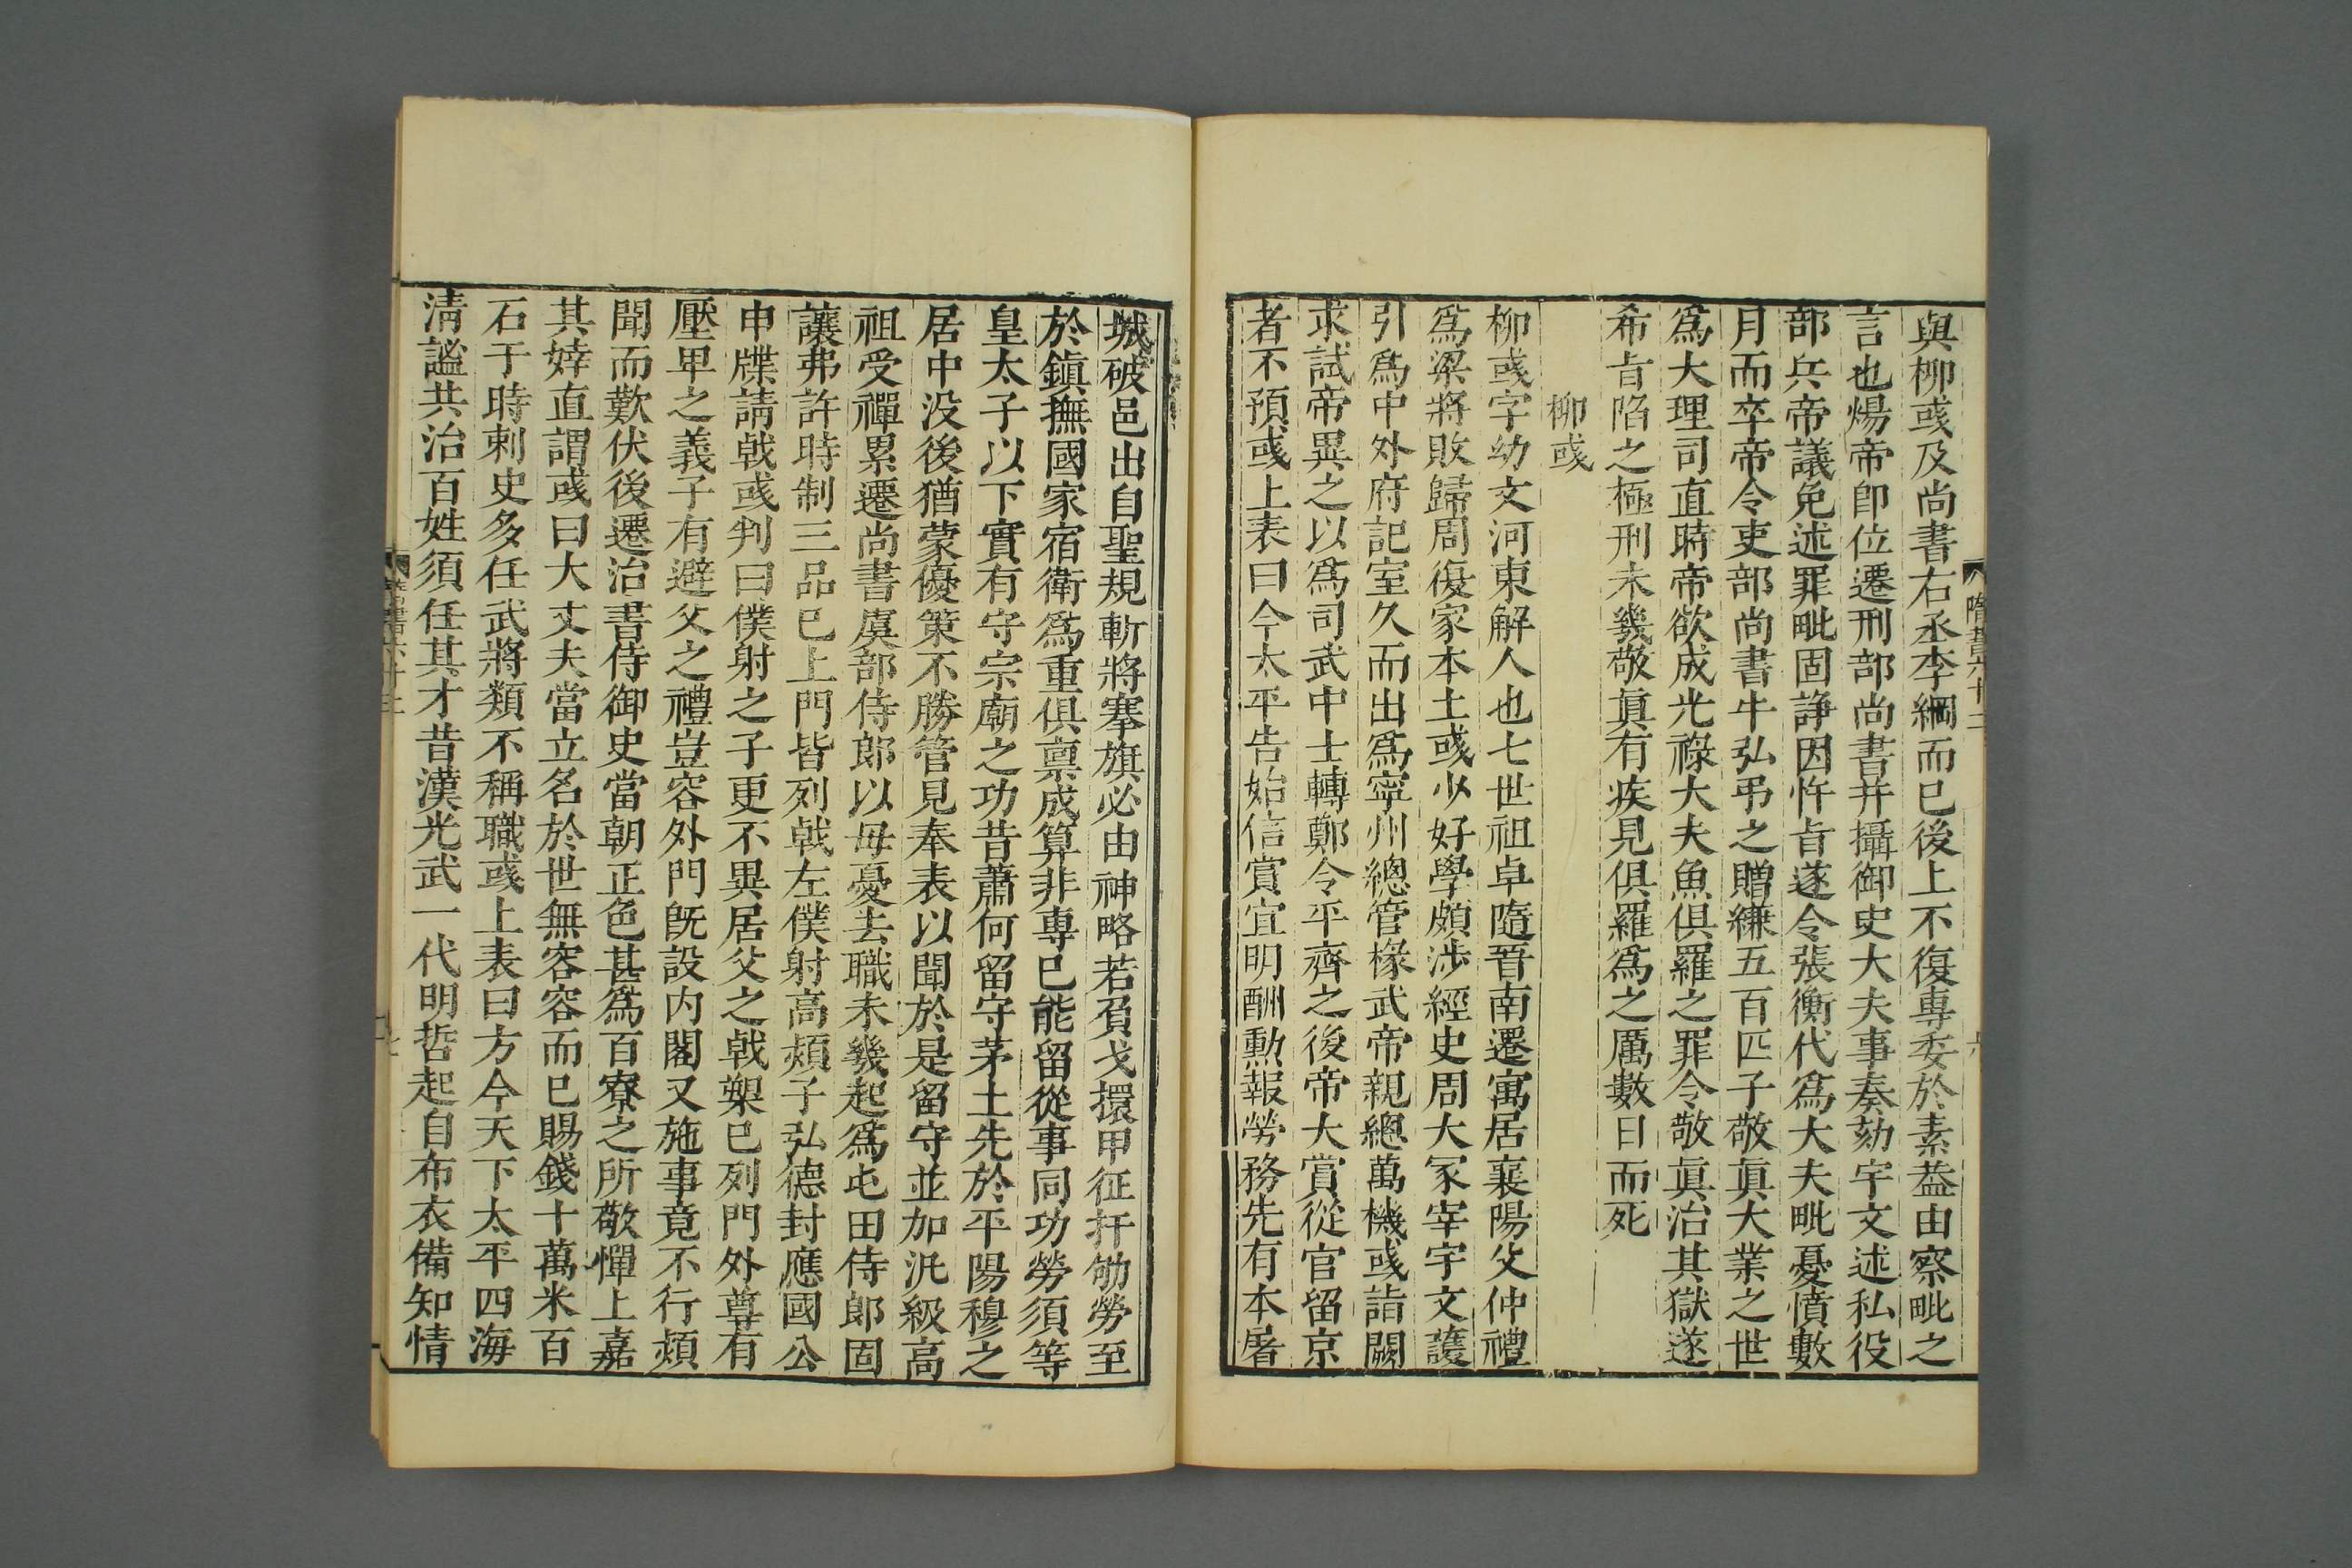 與柳彧及尚書右丞李綱而已後上不復專委於素益由察毗之
言也煬帝卽位遷刑部尚書并攝御史大夫事奏劾宇文述私役
部兵帝議免述罪毗固諍因忤旨遂令張衡代爲大夫毗憂憤數
月而卒帝令吏部尚書牛弘弔之贈縑五百匹子敬眞大業之世
爲大理司直時帝欲成光祿大夫魚俱羅之罪令敬眞治其獄遂
希旨陷之極刑未幾敬眞有疾見俱羅爲之厲數日而死
柳彧
柳彧字幼文河東解人也七世祖卓隨晉南遷寓居襄陽父仲禮
爲梁將敗歸周復家本土彧少好學頗涉經史周大冢宰宇文護
引爲中外府記室久而出爲寧州總管椽武帝親總萬機彧詣闕
求試帝異之以爲司武中士轉鄭令平齊之後帝大賞從官留京
者不預彧上表曰今太平告始信賞宜明酬勲報勞務先有本屠
隋書六十二
六
城破邑出自聖規斬將搴旗必由神略若負戈擐甲征扞劬勞至
於鎭撫國家宿衛爲重俱禀成算非專已能留從事同功勞須等
皇太子以下實有守宗廟之功昔蕭何留守茅土先於平陽穆之
居中没後猶蒙優策不勝管見奉表以聞於是留守並加汎級高
祖受禪累遷尚書虞部侍郎以母憂去職未幾起爲屯田侍郎固
讓弗許時制三品已上門皆列戟左僕射高熲子弘德封應國公
申牒請戟彧判曰僕射之子更不異居父之戟槊已列門外尊有
壓卑之義子有避父之禮豈容外門旣設内閣又施事竟不行熲
聞而歎伏後遷治書侍御史當朝正色甚爲百寮之所敬憚上嘉
其婞直謂彧曰大丈夫當立名於世無容容而已賜錢十萬米百
石于時刺史多任武將類不稱職彧上表曰方今天下太平四海
淸謐共治百姓須任其才昔漢光武一代明哲起自布衣備知情